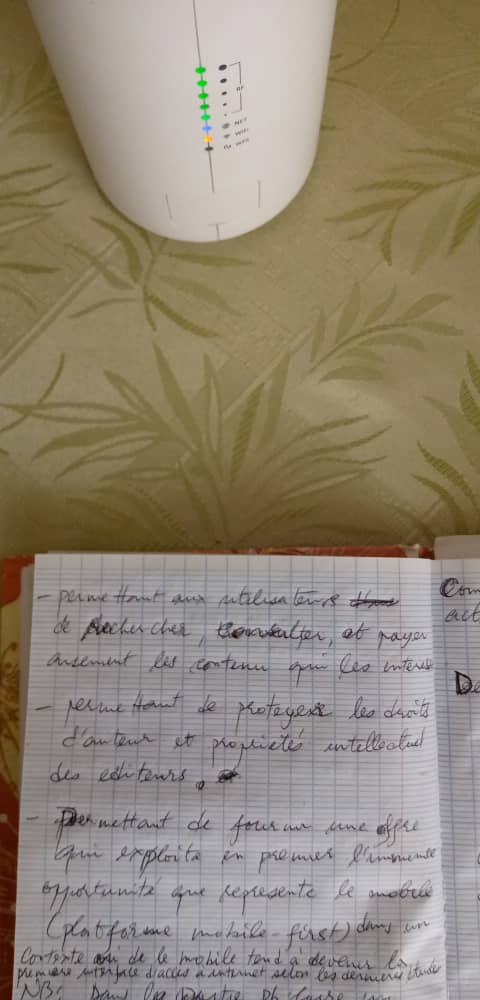 RF
NET
WiFi
WPS
- permettant aux utilisateurs
de Rechercher, Consulter, et payer
aisement les contenu qui les interes
- permettant de proteyer les droits
d'auteur et propriétés intellectuel
des editeurs.
- Permettant de fournir une offre
qui exploite en premier l'immense
opportunité que represente le mobile
(platforme mobile-first) dans un
Contexte où de le mobile tend à devenir la
premiere interface d'acces a internet selon les dernieres études
NB: Dans la
Com
act
De